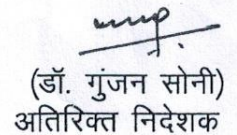 (डॉ. गुंजन सोनी)
अतिरिक्त निदेशक